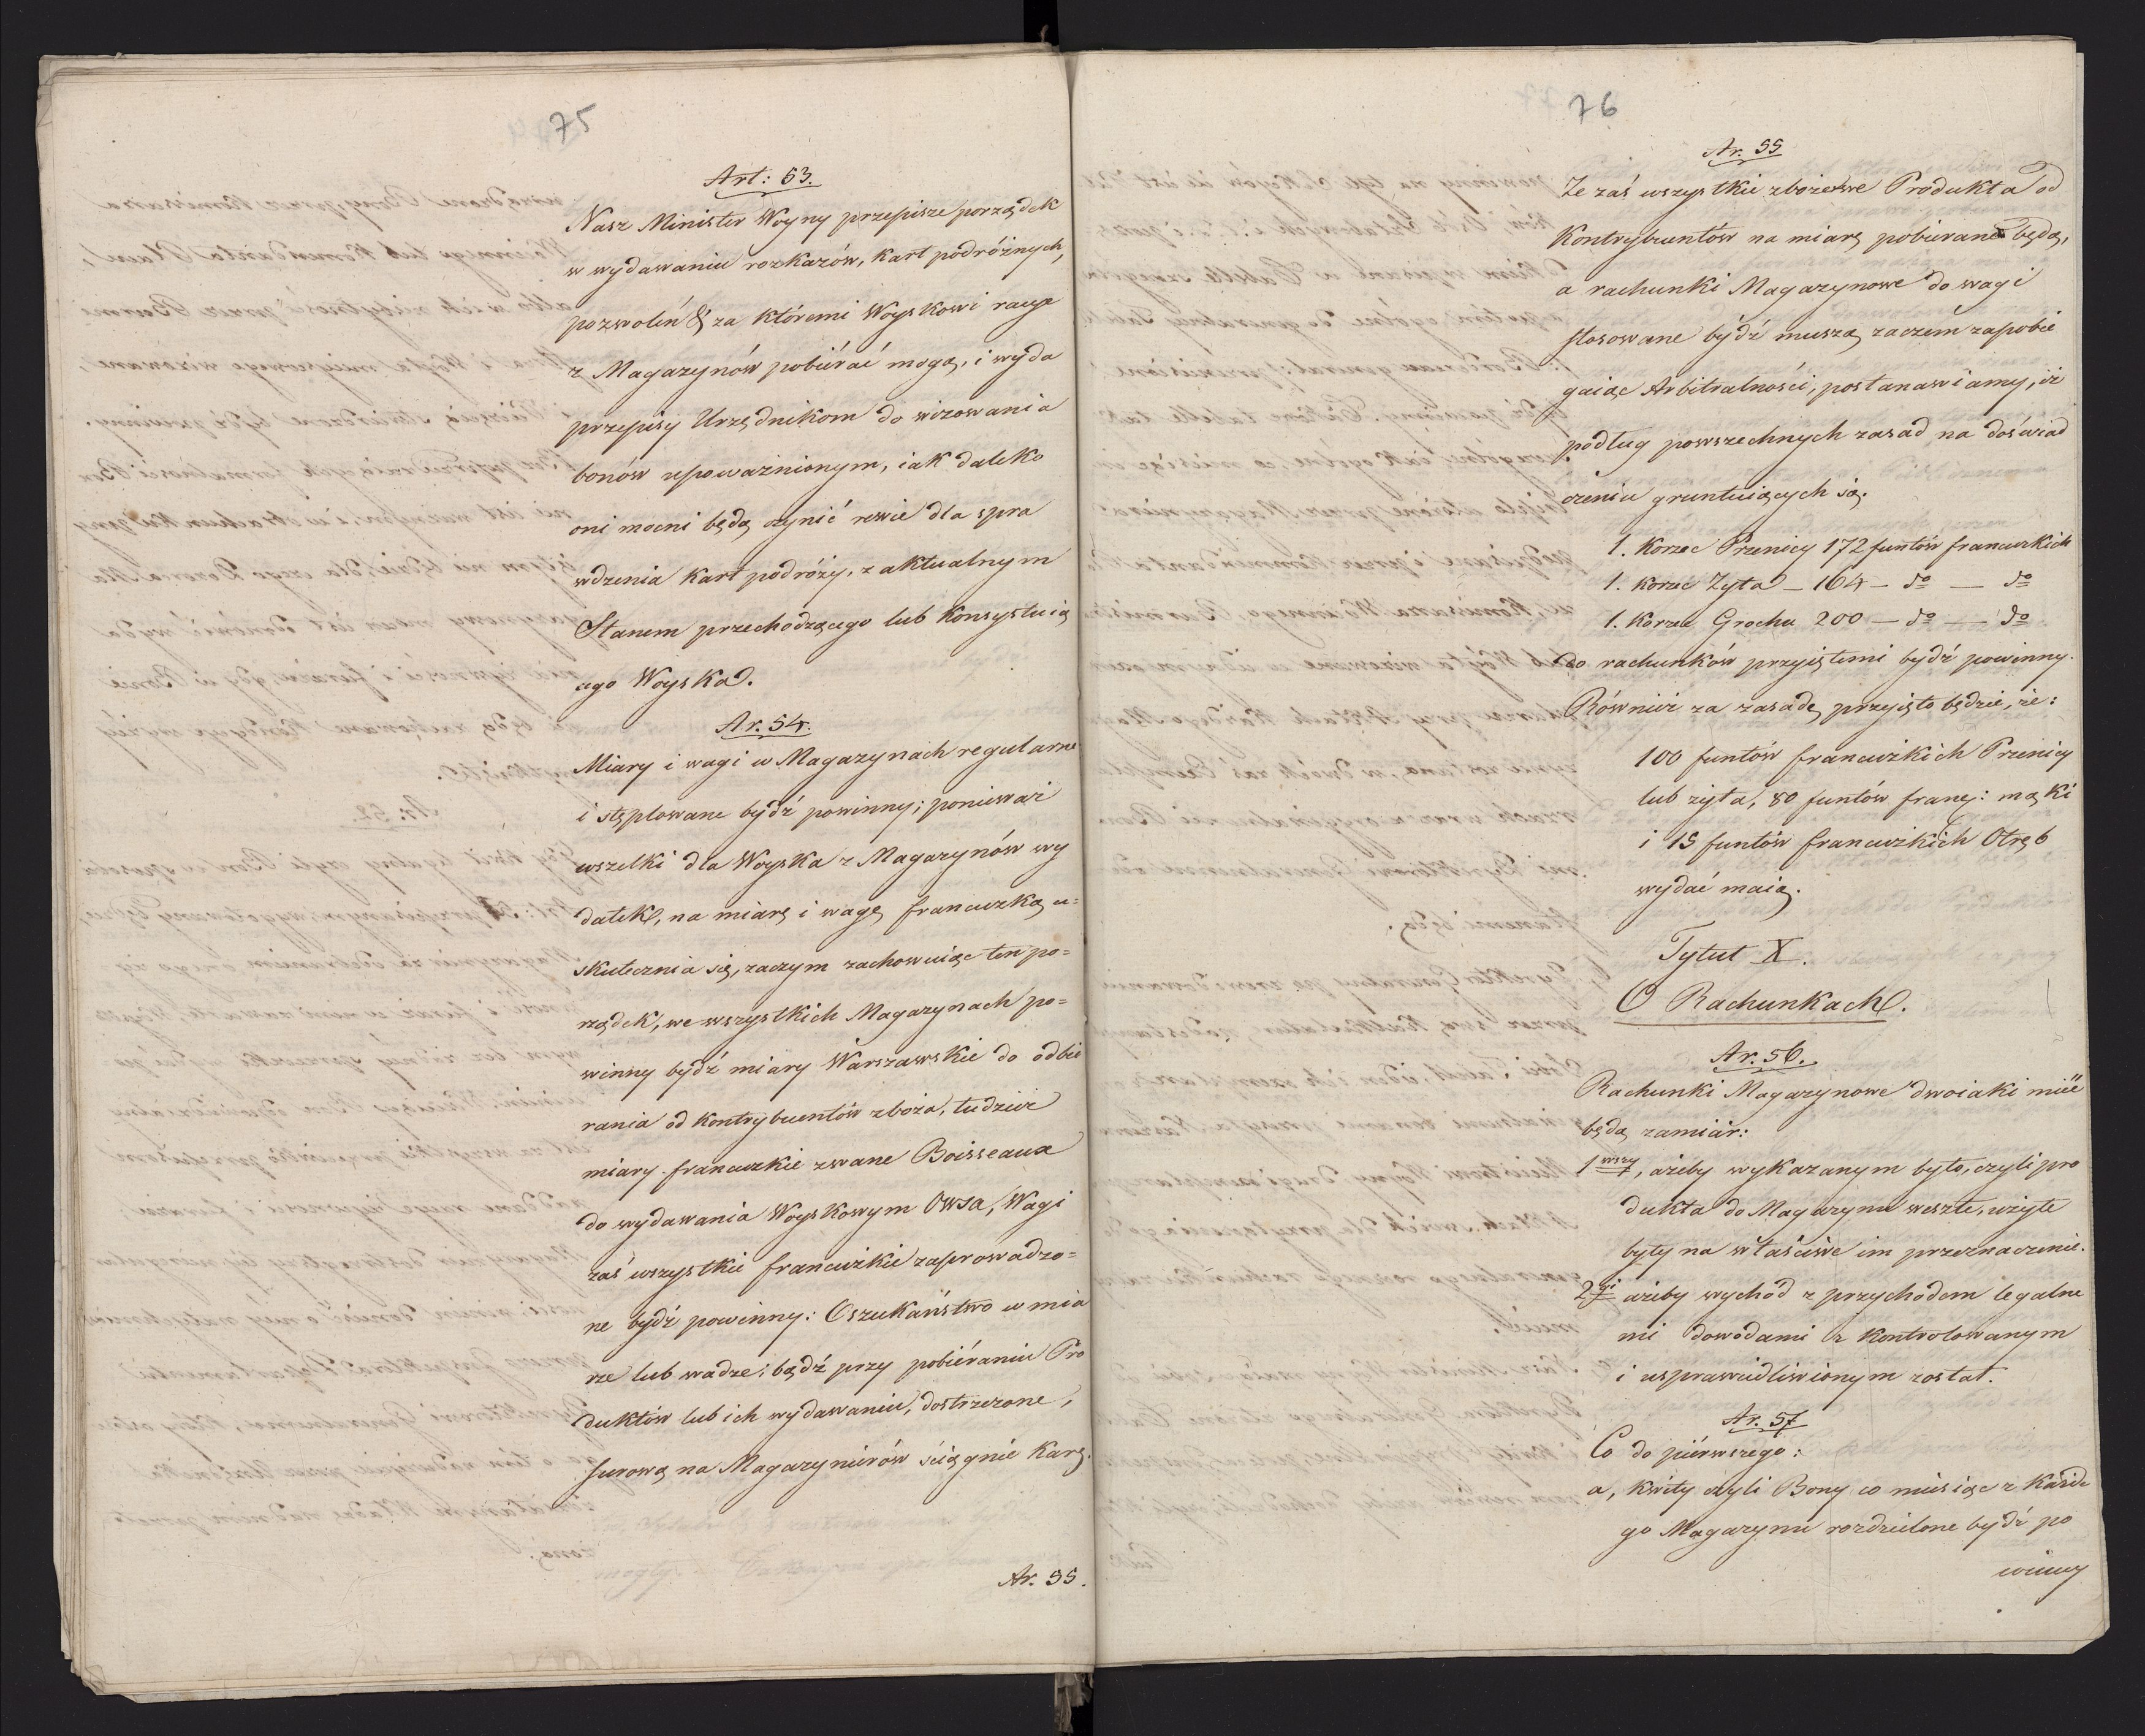 75
Art: 53.
Nasz Minister Woyny przepisze porządek
w wydawaniu rozkazów, kart podróżnych,
pozwoleń & za któremi Woyskowi racye
z Magazynów pobiérać mogą, i wyda
przepisy Urzędnikom do wizowania
bonów upoważnionym, iak daleko
oni mocni będą czynić rewie dla spra
wdzenia kart podróży, z aktualnym
Stanem przechodzącego lub konsystuią
cego Woyska.
Ar. 54.
Miary i wagi w Magazynach regularne
i stęplowane bydź powinny; ponieważ
wszelki dla Woyska z Magazynów wy
datek, na miarę i wagę francuzką u=
skutecznia się, zaczym zachowuiąc ten po=
rządek, we wszystkich Magazynach po=
winny bydź miary Warszawskie do odbie
rania od kontrybuentów zboża, tudzież
miary francuzkie zwane Boisseaux
do wydawania Woyskowym Owsa, Wagi
zaś wszystkie francuzkie zaprowadzo=
ne bydź powinny: Oszukaństwo w mia
rze lub wadze; bądź przy pobiéraniu Pro
duktów lub ich wydawaniu, dostrzeżone,
surową na Magazynierów ściągnie karę.
Ar. 55.
76
Ar. 55
Ze zaś wszystkie zbożowe Produkta od
Kontrybuentów na miarę pobierane będą,
a rachunki Magazynowe do wagi
stosowane bydź muszą, zaczem zapobie
gaiąc Arbitralności, postanawiamy, iż
podług powszechnych zasad na doświad
czeniu gruntuiących się.
1. Korzec Pszenicy 172 funtów francuzkich
1. Korzec Żyta — 164 — do — do
1. Korzec Grochu 200 — do — do
do rachunków przyiętemi bydź powinny.
Również za zasadę przyięto będzie, że:
100 funtów francuzkich Pszenicy
lub żyta, 80 funtów franc: mąki
i 15 funtów francuzkich Otręb
wydać maią.
Tytuł X.
O Rachunkach.
Ar. 56.
Rachunki Magazynowe dwoiaki mieć
będą zamiár:
1wszy, ażeby wykazanym było, czyli pro
dukta do Magazynu weszłe, użyte
były na właściwe im przeznaczenie.
2gi ażeby wychód z przychodem legalne
mi dowodami z kontrolowanym
i usprawiedliwionym został.
Ar. 57
Co do piérwszego:
a, kwity czyli Bony co miesiąc z każde
go Magazynu rozdzielone bydź po
winny